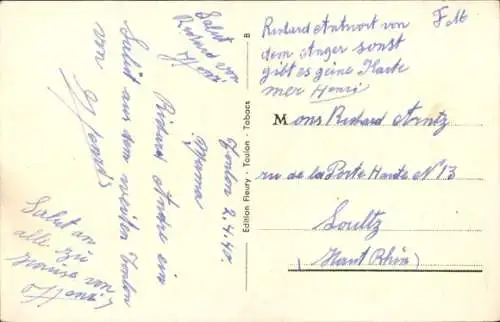 Salut
Richard von
Henri
Toulon 2.4.40.
Mama
Richard Andre ein
Salüt aus dem weiten Toulon
von
Henri
Salut an
alle zu
Hause von
Henri
Edition Fleury - Toulon - Tabacs
B
F M
Richard Antwort von
dem Anger sonst
gibt es geine Karte
mer Henri
Mons Richard
ru de la Porte Haute N° 13
Soultz
(Haut Rhin)